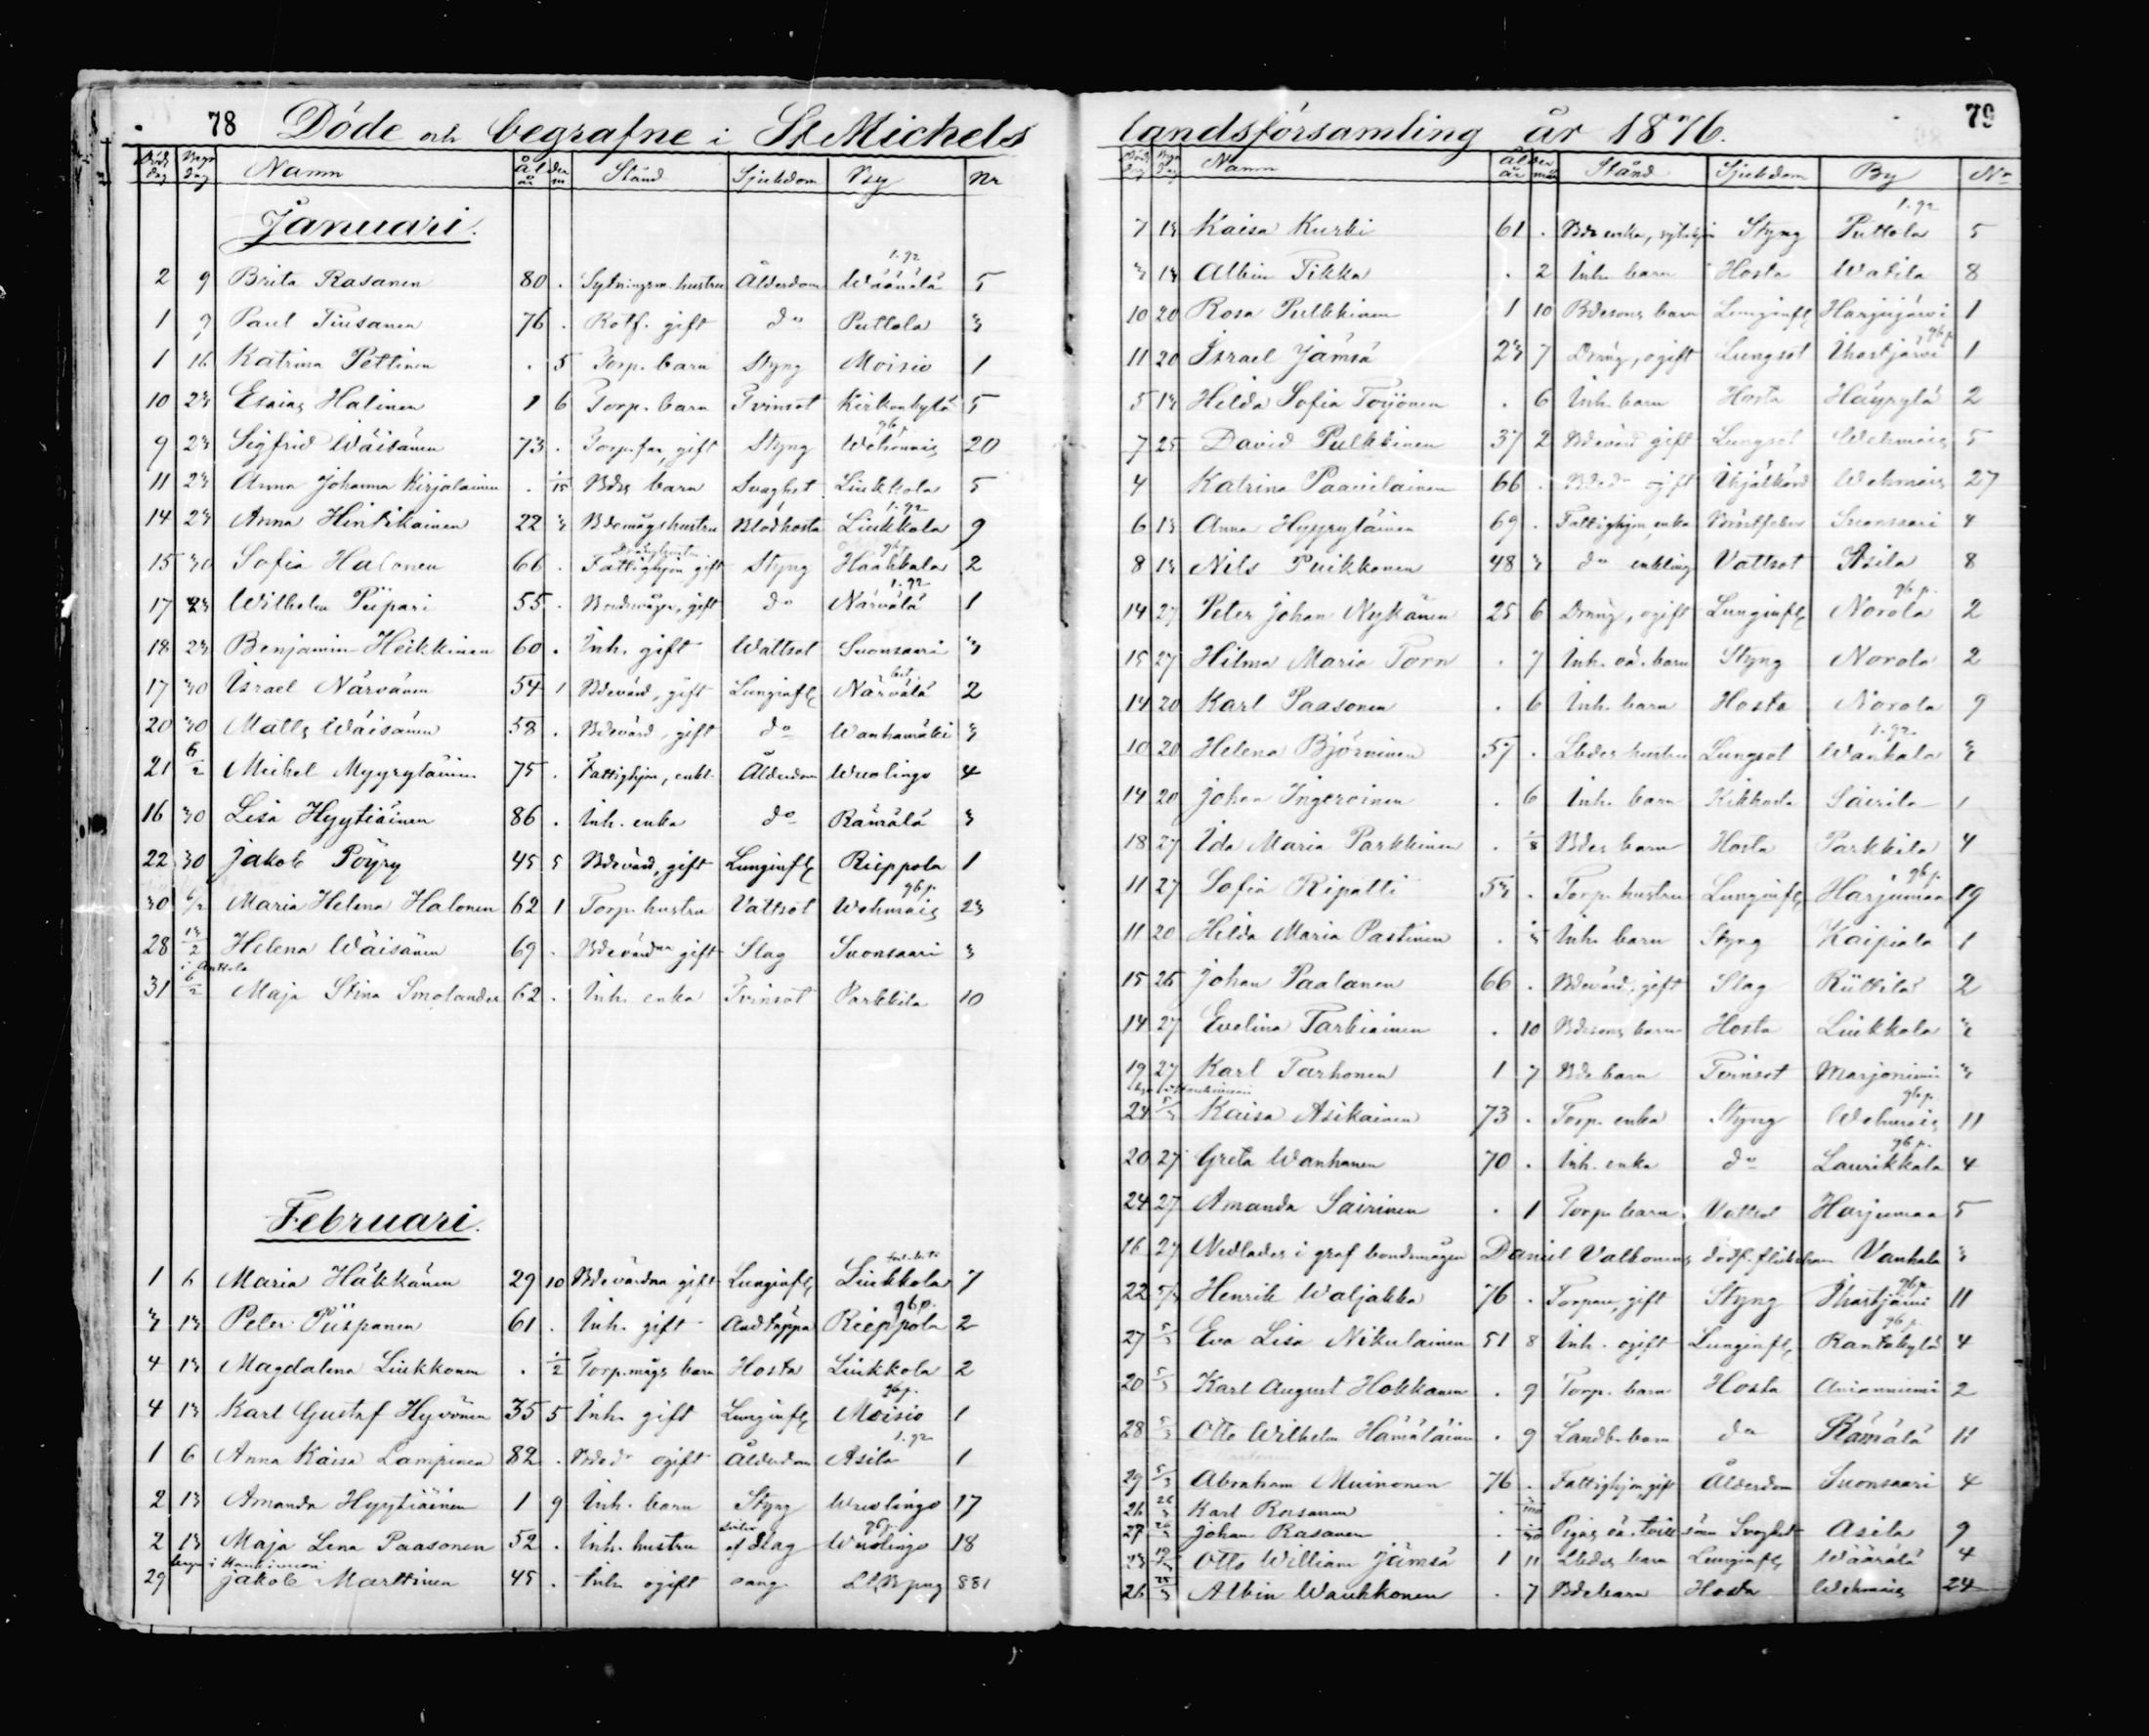 78 Döde och begrafne i St Michels
Död dag Begr dag Namn Ålder år m Stånd Sjukdom By Nr
Januari.
2 9 Brita Rasanen 80 . Sytningsm. hustru Ålderdom Wäänälä 5
1 9 Paul Tiusanen 76 . Rotf. gift do Puttola 3
1 16 Katrina Pöttinen . 5 Torp. barn Styng Moisio 1
10 23 Esaias Halinen 1 6 Torp. barn Tvinsot Kirkonkylä 5
9 23 Sigfrid Wäisänen 73 . gift Styng 20
11 23 Anna Johanna Kirjalainen . Bdes barn Svaghet Liukkola 5
14 23 Anna Hintikainen 22 3 Bdemågshustru Blodhosta Liukkola 9
15 30 Sofia Halonen 66 . Fattighjon gift Styng Haahkala 2
17 23 Wilhelm Piipari 55 . gift do Närvälä 1
18 23 Benjamin Heikkinen 60 . Inh. gift Wattsot Suonsaari 3
17 30 Israel Närvänen 54 1 Bdevärd, gift Lunginfl Närvälä 2
20 30 Matts Wäisänen 58 . Bdevärd, gift do Wanhamäki 3
21 6/2 Michel Myyryläinen 75 . Fattighjon, enkl. Ålderdom Wuolingo 4
16 30 Lisa Hyytiäinen 86 . Inh. enka do Rämälä 3
22 30 Jakob Pöyry 45 5 Bdevärd, gift Lunginfl Rieppola 1
30 6/2 Maria Helena Halonen 62 1 Torp. hustru Vattsot Wehmais 23
28 13/2 Helena Wäisänen 69 . Bdevärdna gift Slag Suonsaari 3
i Anttola
31 6/2 Maja Stina Smolander 62 . Inh. enka Tvinsot Parkkila 10
Februari.
1 6 Maria Häkkänen 29 10 Bdevärdna gift Lunginfl Liukkola 7
3 13 Peter Piispanen 61 . Inh. gift Andtäppa Rieppola 2
4 13 Magdalena Liukkonen . 1/2 Torp.mågs barn Hosta Liukkola 2
4 13 Karl Gustaf Hyvönen 35 5 Inh. gift Lunginfl Moisio 1
1 6 Anna Kaisa Lampinen 82 . ogift Ålderdom Asila 1
2 13 Amanda Hyytiäinen 1 9 Inh. barn Styng Wuolingo 17
2 13 Maja Lena Paasonen 52 . Inh. hustru af Slag Wuolingo 18
29 Jakob Marttinen 45 . Inh. ogift 881
landsförsamling år 1876. 79
Död dag Begr dag Namn Ålder år mån Stånd Sjukdom By No
7 13 Kaisa Kurki 61 . Bde enka, Styng Puttola 5
3 13 Albin Tikka . 2 Inh. barn Hosta Watila 8
10 20 Rosa Pulkkinen 1 10 Bdesons barn Lunginfl Harjujärvi 1
11 20 Israel Jämsä 23 7 Dräng, ogift Lungsot Ihastjärvi 1
5 13 Hilda Sofia Torjonen . 6 Inh. barn Hosta Häyrylä 2
7 25 David Pulkkinen 37 2 Bdevärd gift Lungsot Wehmais 5
4 Katrina Paavilainen 66 . Wehmais 27
6 13 Anna Hyyryläinen 69 . Fattighjon, enka Bröstfeber Suonsaari 4
8 13 Nils Puikkonen 48 3 do enkling Vattsot Asila 8
14 27 Peter Johan Nykänen 25 6 Dräng, ogift Lunginfl Norola 2
15 27 Hilma Maria Torn . 7 Inh. oä. barn Styng Norola 2
14 20 Karl Paasonen . 6 Inh. barn Hosta Norola 9
10 20 Helena Björninen 57 . Lbdes hustru Lungsot Wanhala 3
14 20 Johan Ingeroinen . 6 Inh. barn Kikhosta Sairila 1
18 27 Ida Maria Parkkinen . Bdes barn Hosta Parkkila 4
11 27 Sofia Ripatti 53 . Torp. hustru Lunginfl Harjumaa 19
11 20 Hilda Maria Pastinen . Inh. barn Styng Kaipiala 1
15 26 Johan Paalanen 66 . Bdevärd, gift Slag Rüttilä 2
14 27 Evelina Tarkiainen . 10 Bdesons barn Hosta Liukkola 3
19 27 Karl Tarhonen 1 7 Bde barn Tvinsot Marjoniemi 3
23 5/3 Kaisa Asikainen 73 . Torp. enka Styng Wehmais 11
20 27 Greta Wanhanen 70 . Inh. enka do Laurikkala 4
24 27 Amanda Sairinen . 1 Torp. barn Vattsot Harjumaa 5
16 27 Nedlades i graf bondemågen Daniel Valkonens dödf. flickebarn Vanhala 3
22 5/3 Henrik Waljakka 76 . Torpare, gift Styng Ihastjärvi 11
27 5/3 Eva Lisa Nikulainen 51 8 Inh. ogift Lunginfl Rantakylä 4
20 5/3 Karl August Hokkanen . 9 Torp. barn Hosta Anianniemi 2
28 5/3 Otto Wilhelm Hämäläinen . 9 Landb. barn do Rämälä 11
29 5/3 Abraham Muinonen 76 . Fattighjon, gift Ålderdom Suonsaari 4
26 26/3 Karl Rasanen .
27 26/3 Johan Rasanen . Pigas oä. tvillsöner Svaghet Asila 9
23 19/3 Otto William Jämsä 1 11 Lbdes barn Lunginfl Wäärälä 4
26 25/3 Albin Waukkonen . 7 Bde barn Hosta Wehmais 24